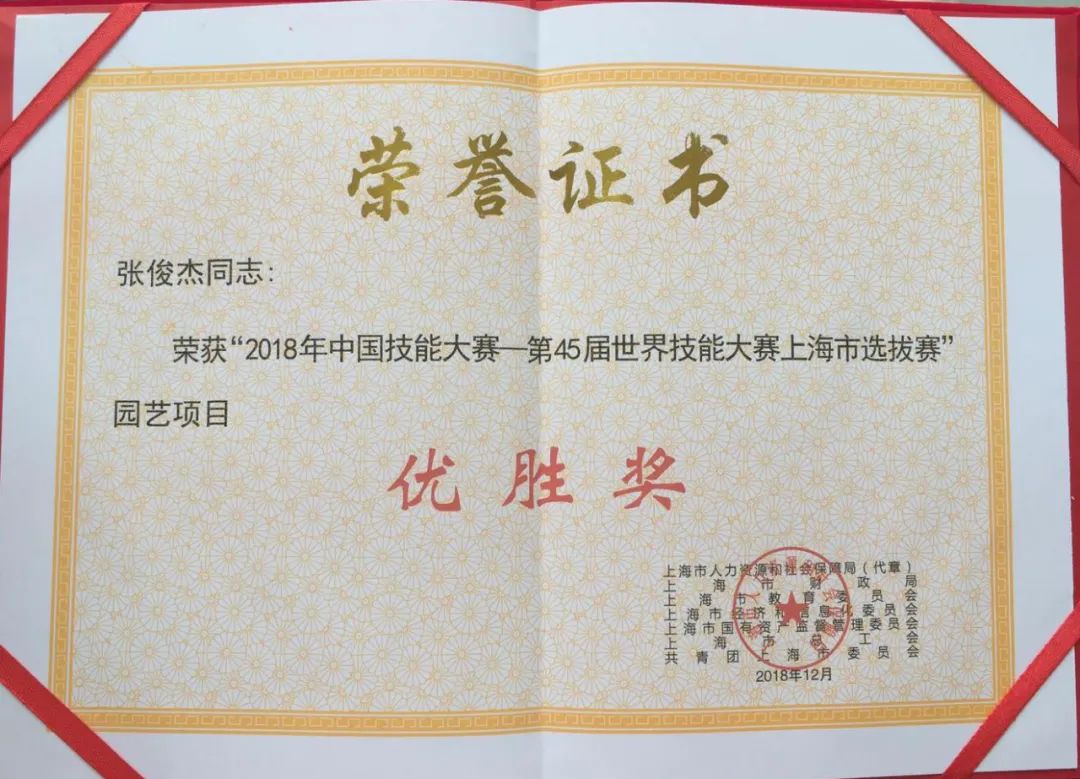 荣誉证书
张俊杰同志:
荣获“2018年中国技能大赛—第45届世界技能大赛上海市选拔赛”
园艺项目
优胜奖
上海市人力资源和社会保障局(代章)
上海市财政局
上海市教育委员会
上海市经济和信息化委员会
上海市国有资产监督管理委员会
上海市总工会
共青团上海市委员会
2018年12月